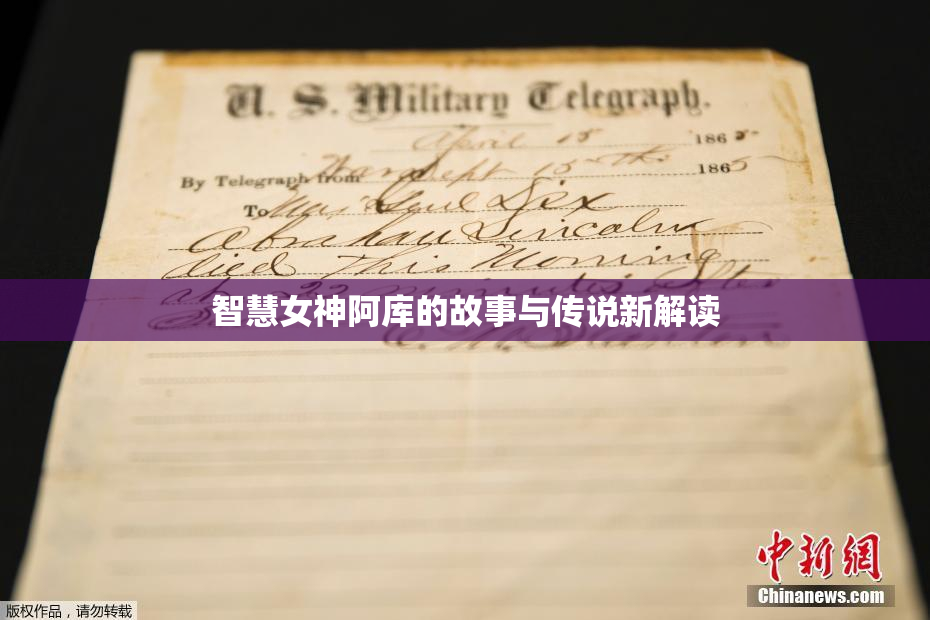 U. S. Military Telegraph.
April 15 1865
By Telegraph from War Dept 15th 1865
To Maj Genl Dix
Abraham Lincoln
died This Morning
at 22 minutes after
智慧女神阿库的故事与传说新解读
中新网
Chinanews.com
版权作品，请勿转载